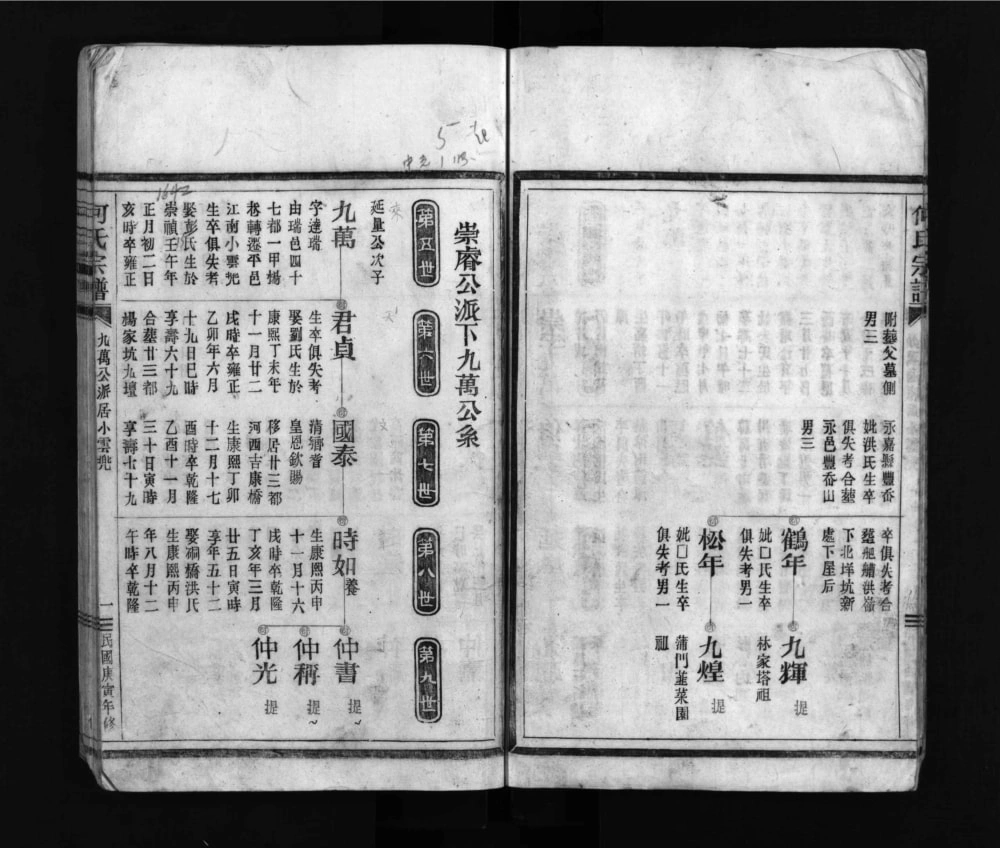 何氏宗譜
附葬父墓側
男三
永嘉縣豐岙
妣洪氏生卒
俱失考合塟
永邑豐岙山
男三
卒俱失考合
下北垟坑新
處下屋后
鶴年
妣口氏生卒
俱失考男一
松年
妣口氏生卒
俱失考男一
九輝
提
林家塔祖
九煌
提
蒲門韮菜園
祖
崇睿公派下九萬公系
第五世
第六世
第七世
第八世
第九世
延量公次子
九萬
字達瑞
由瑞邑四十
七都一甲塲
巷轉遷平邑
江南小雲兠
生卒俱失考
娶彭氏生於
崇禎壬午年
正月初二日
亥時卒雍正
君貞
生卒俱失考
娶劉氏生於
康熙丁未年
十一月廿二
戌時卒雍正
乙卯年六月
十九日巳時
享壽六十九
合塟廿三都
楊家坑九壇
國泰
清耆
皇恩欽賜
移居廿三都
河西吉康橋
生康熙丁卯
十二月十七
酉時卒乾隆
乙酉十一月
三十日寅時
享壽七十九
時如
養
生康熙丙申
十一月十六
戌時卒乾隆
丁亥年三月
廿五日寅時
享年五十二
娶硐橋洪氏
生康熙丙申
年八月十二
午時卒乾隆
仲書
提
仲稱
提
仲光
提
1642
何氏宗譜
九萬公派居小雲兠
一
民國庚寅年修